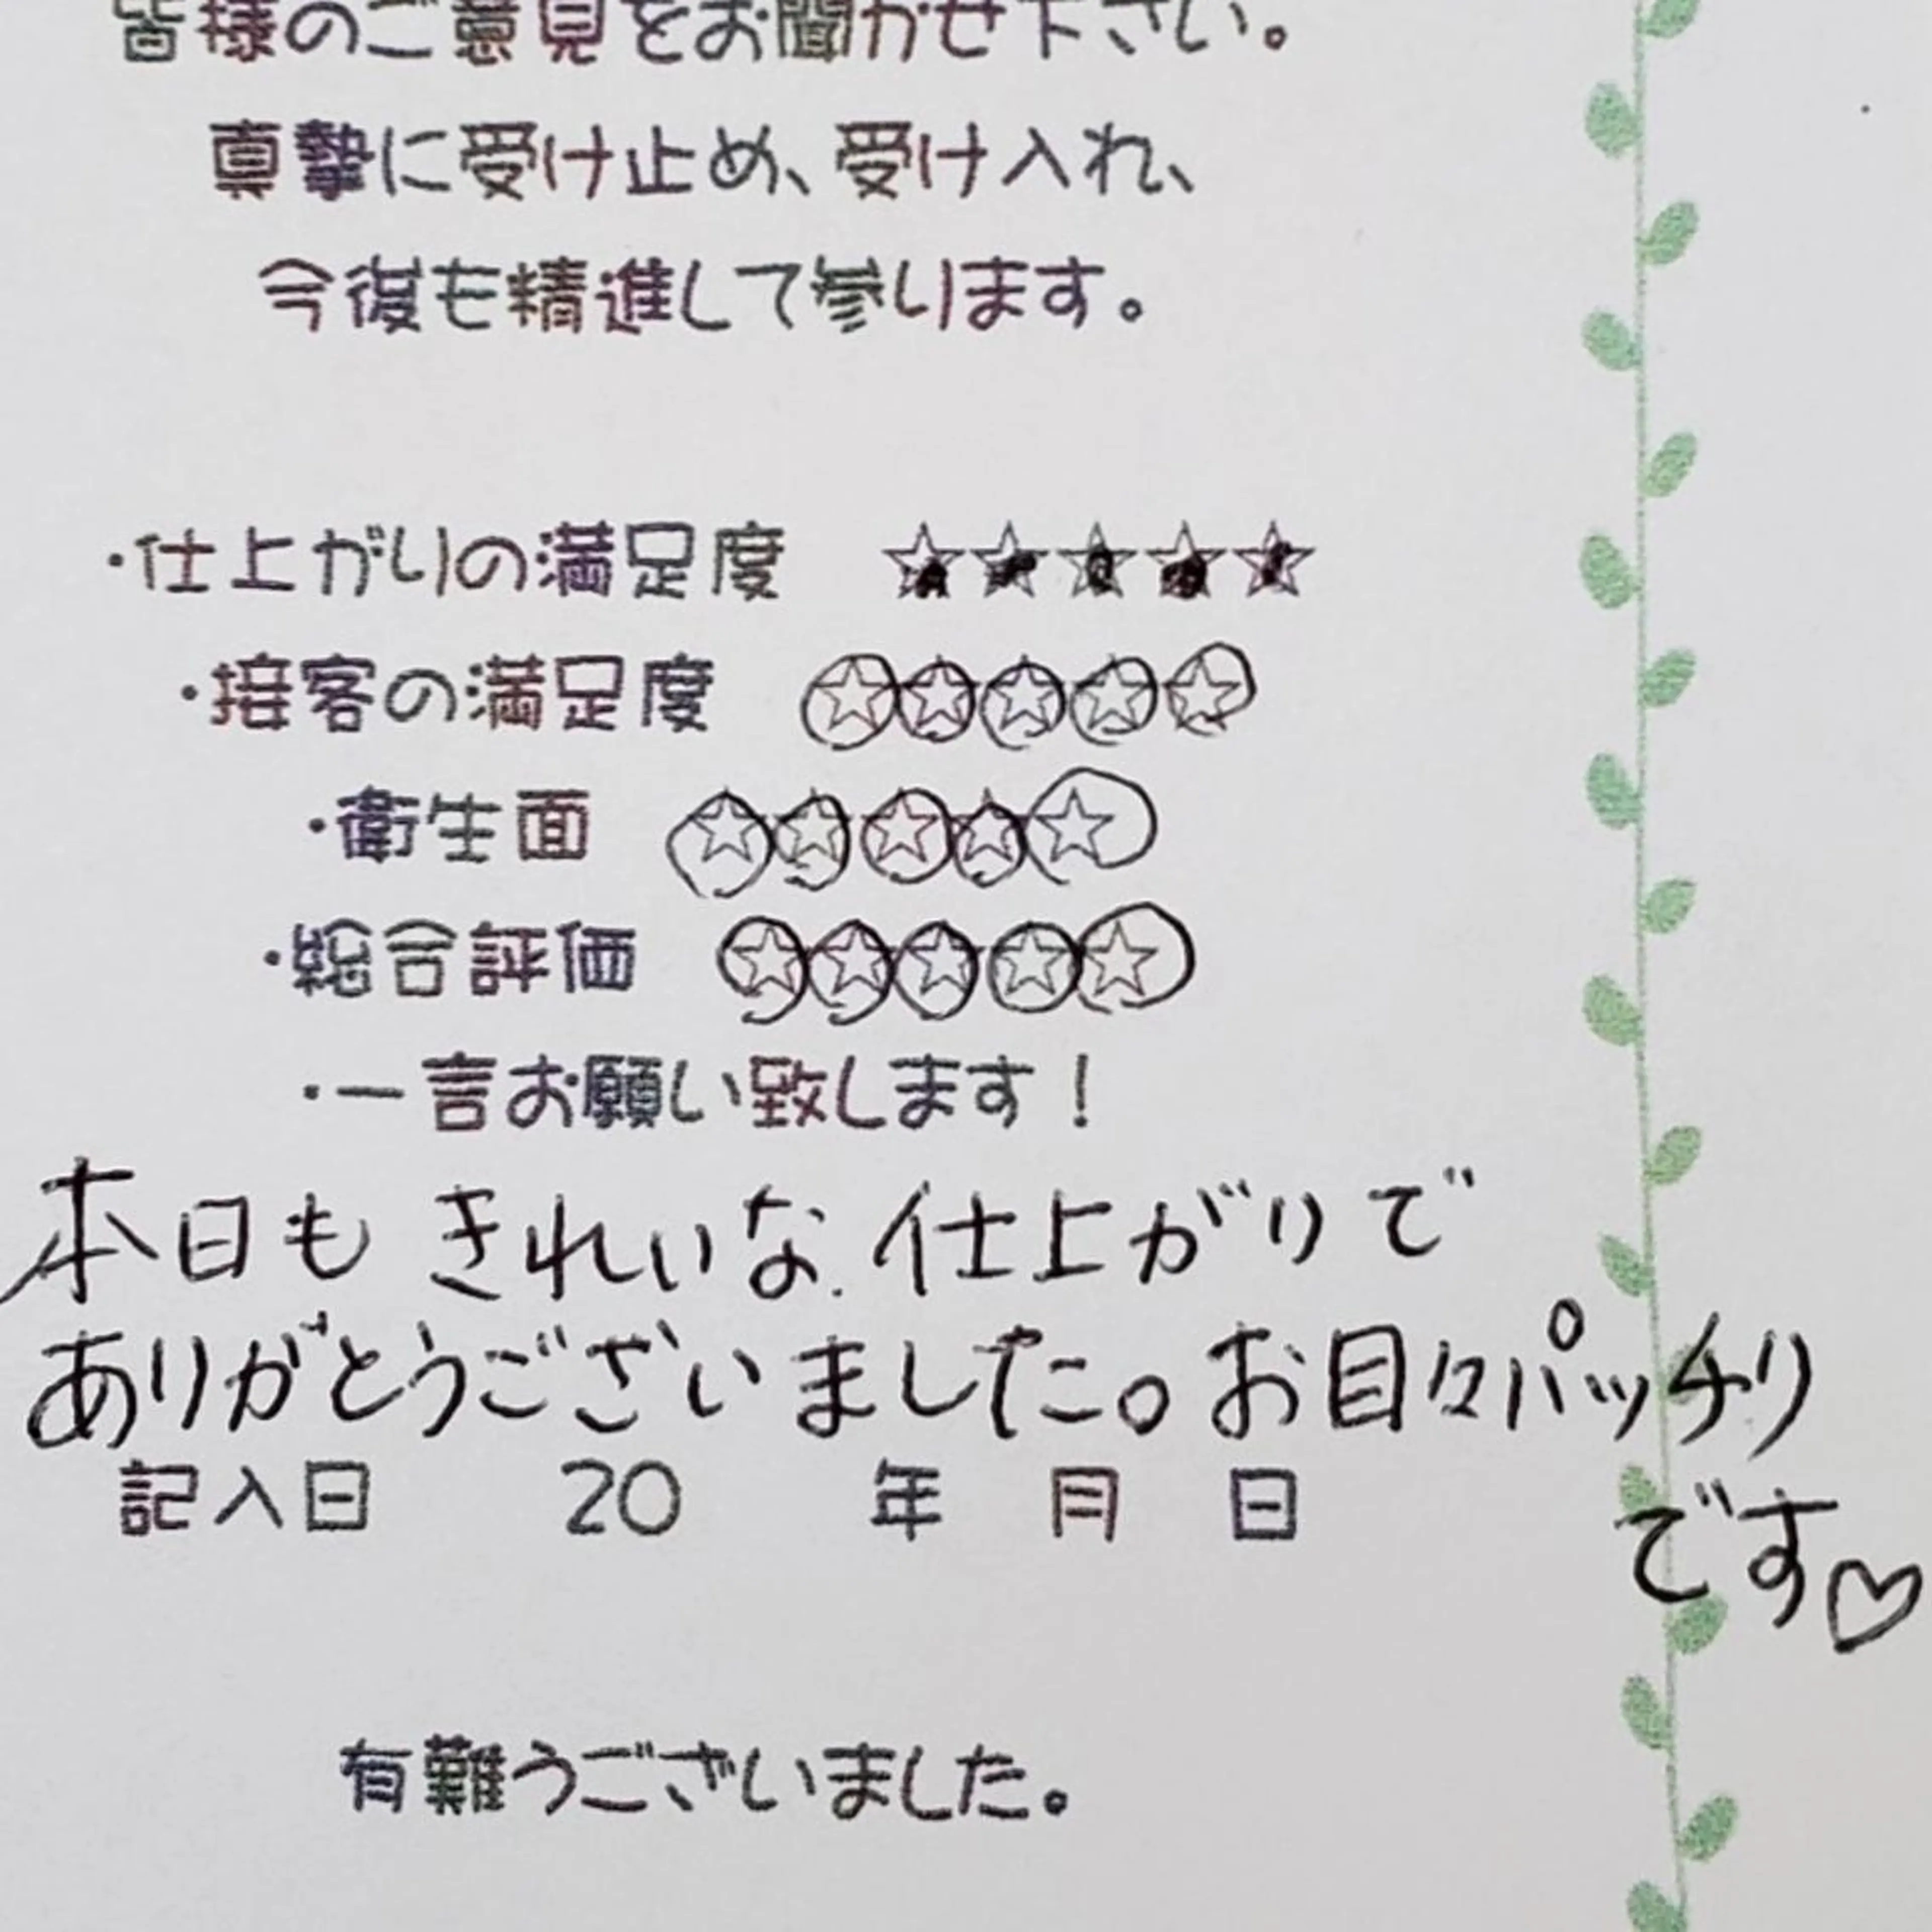 皆様のご意見をお聞かせ下さい。
真摯に受け止め、受け入れ、
今後も精進して参ります。
・仕上がりの満足度 ☆☆☆☆☆
・接客の満足度 ☆☆☆☆☆
・衛生面 ☆☆☆☆☆
・総合評価 ☆☆☆☆☆
・一言お願い致します！
本日も きれいな 仕上がりで
ありがとうございました。お目々パッチリ
です♡
記入日 20 年 月 日
有難うございました。